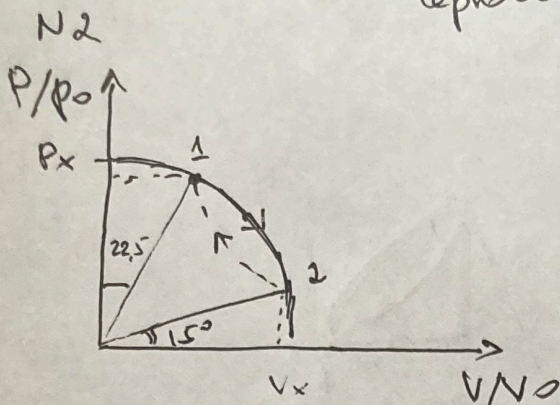 N2
P/p0
Px
1
22,5
2
15°
Vx
V/V0